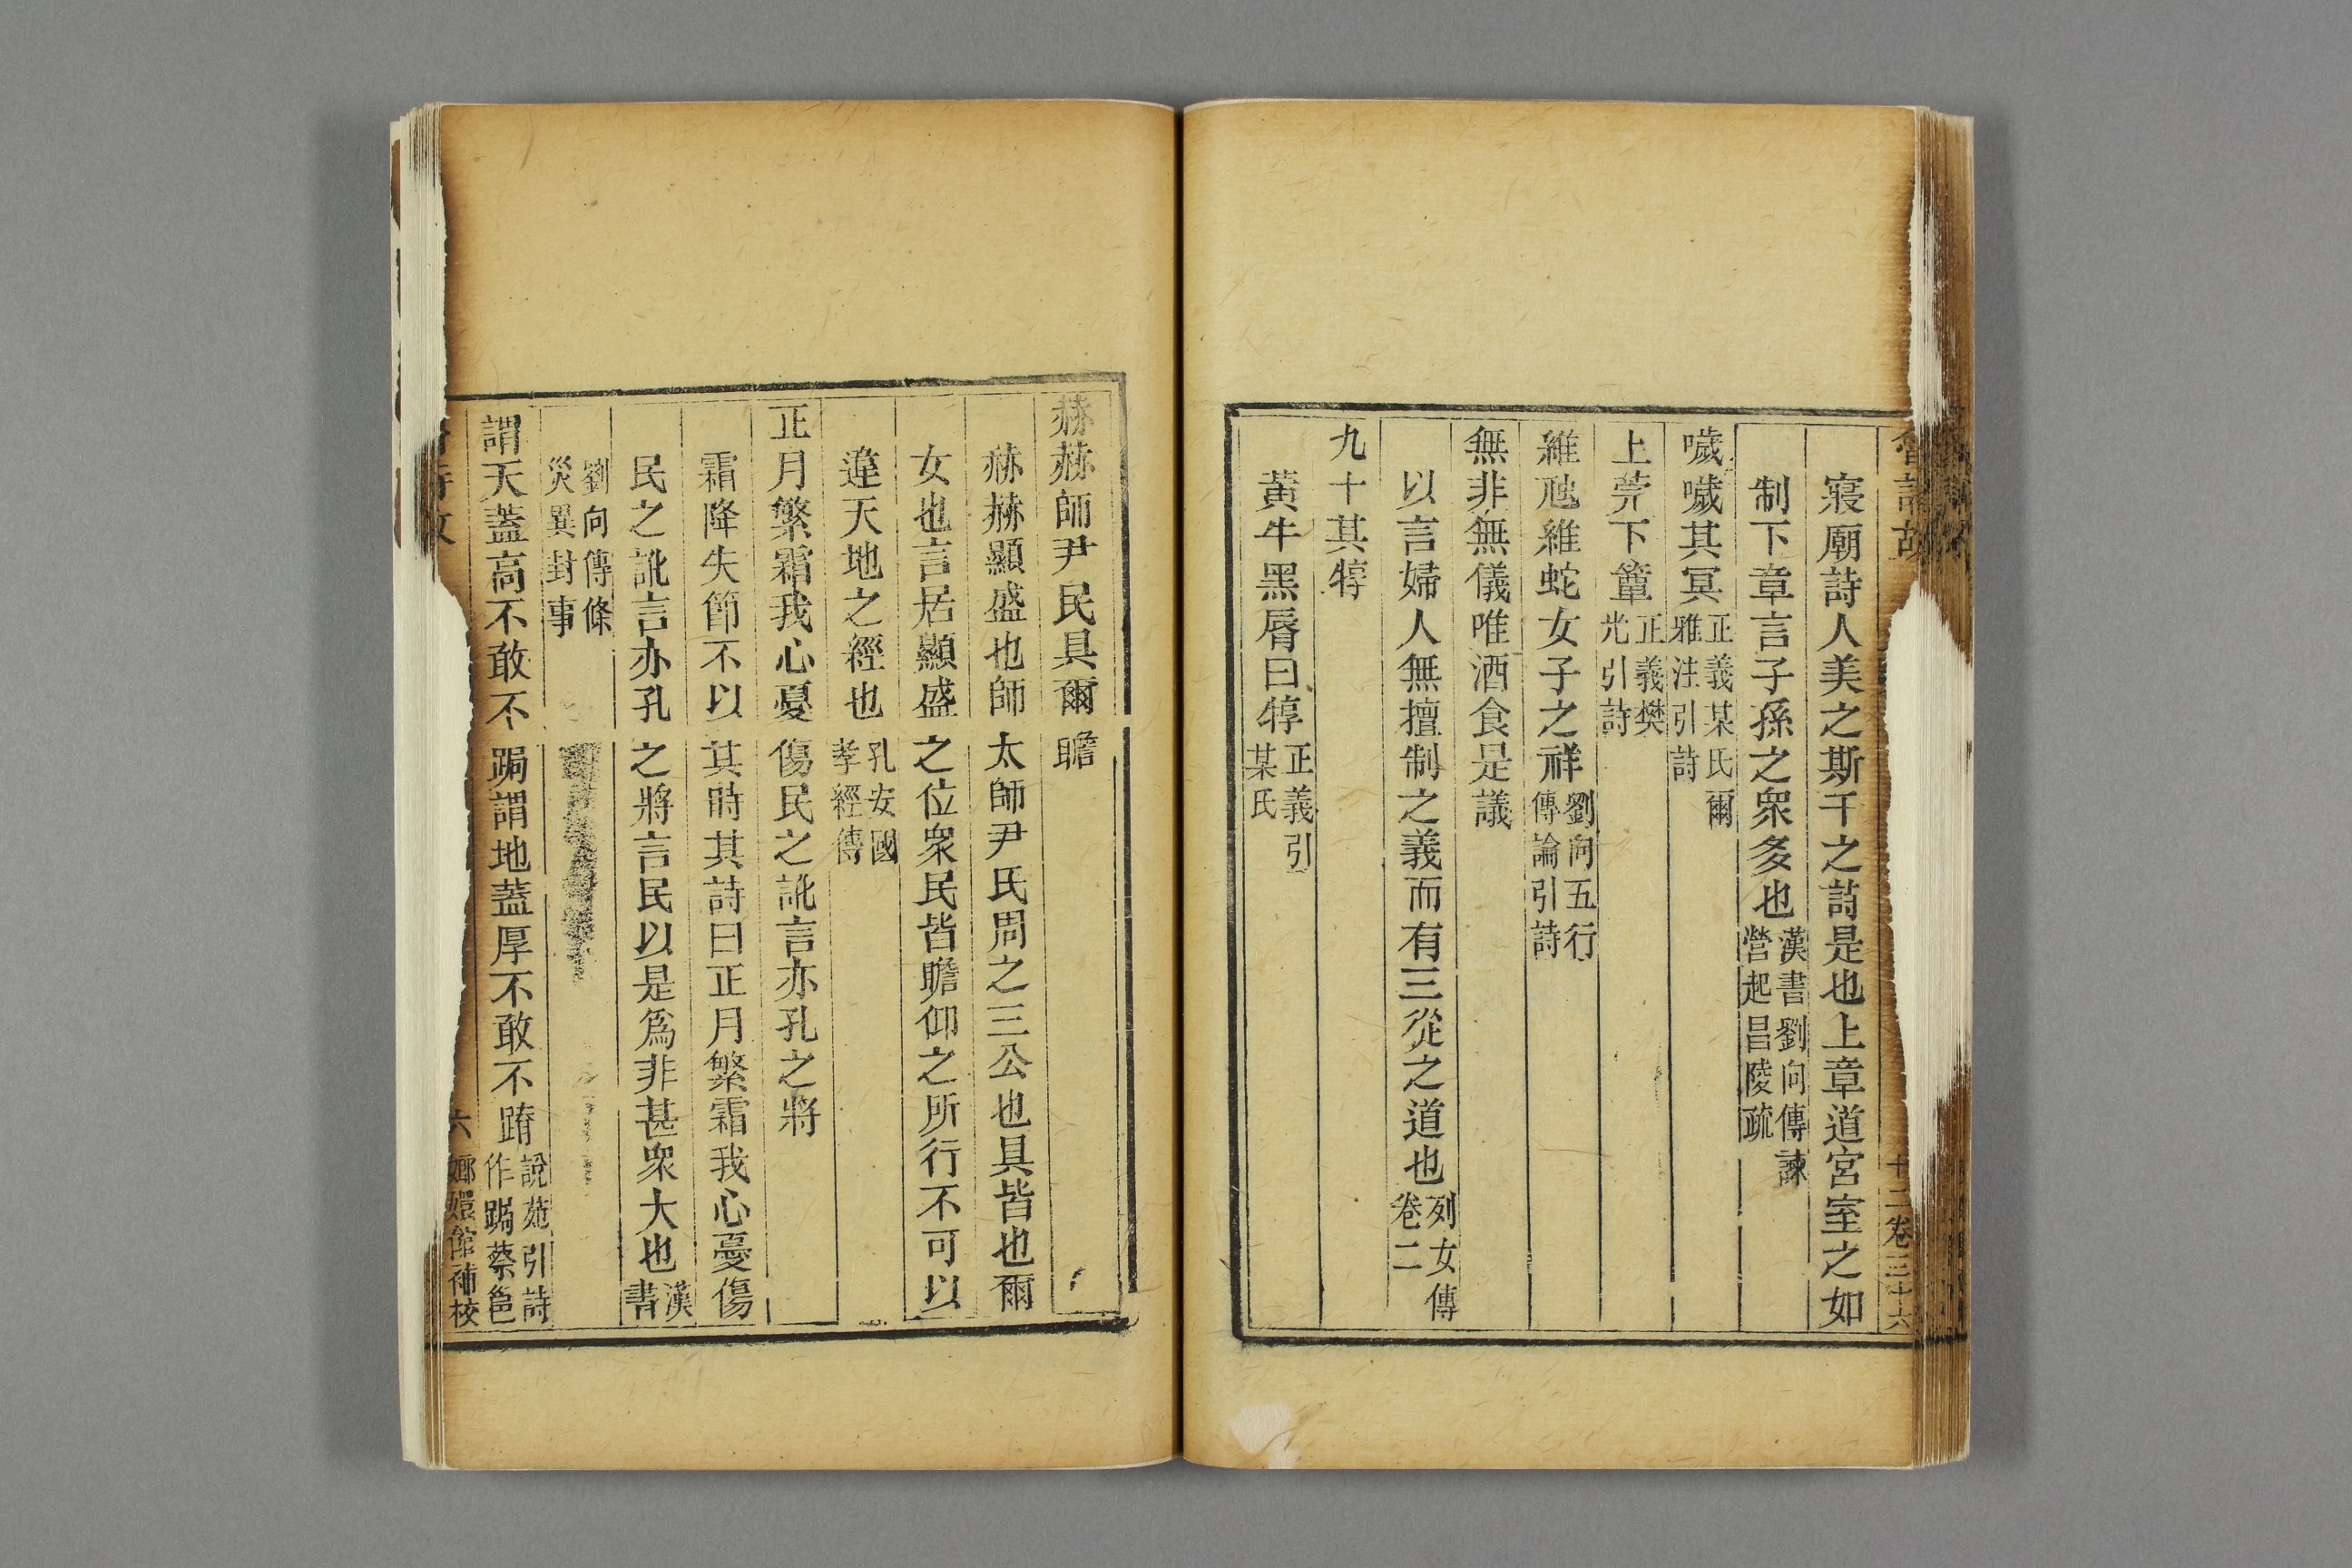 魯詩故
十二卷三十六
寢廟詩人美之斯干之詩是也上章道宮室之如
制下章言子孫之衆多也漢書劉向傳諫營起昌陵疏
噦噦其冥正義某氏爾雅注引詩
上莞下簟正義樊光引詩
維虺維蛇女子之祥劉向五行傳論引詩
無非無儀唯酒食是議
以言婦人無擅制之義而有三從之道也列女傳卷二
九十其犉
黃牛黑脣曰犉正義引某氏
赫赫師尹民具爾瞻
赫赫顯盛也師太師尹氏周之三公也具皆也爾
女也言居顯盛之位衆民皆瞻仰之所行不可以
違天地之經也孔安國孝經傳
正月繁霜我心憂傷民之訛言亦孔之將
霜降失節不以其時其詩曰正月繁霜我心憂傷
民之訛言亦孔之將言民以是爲非甚衆大也漢書
劉向傳條災異封事
謂天蓋高不敢不跼謂地蓋厚不敢不蹐說苑引詩作跼蔡邕
六
嫏嬛館補校